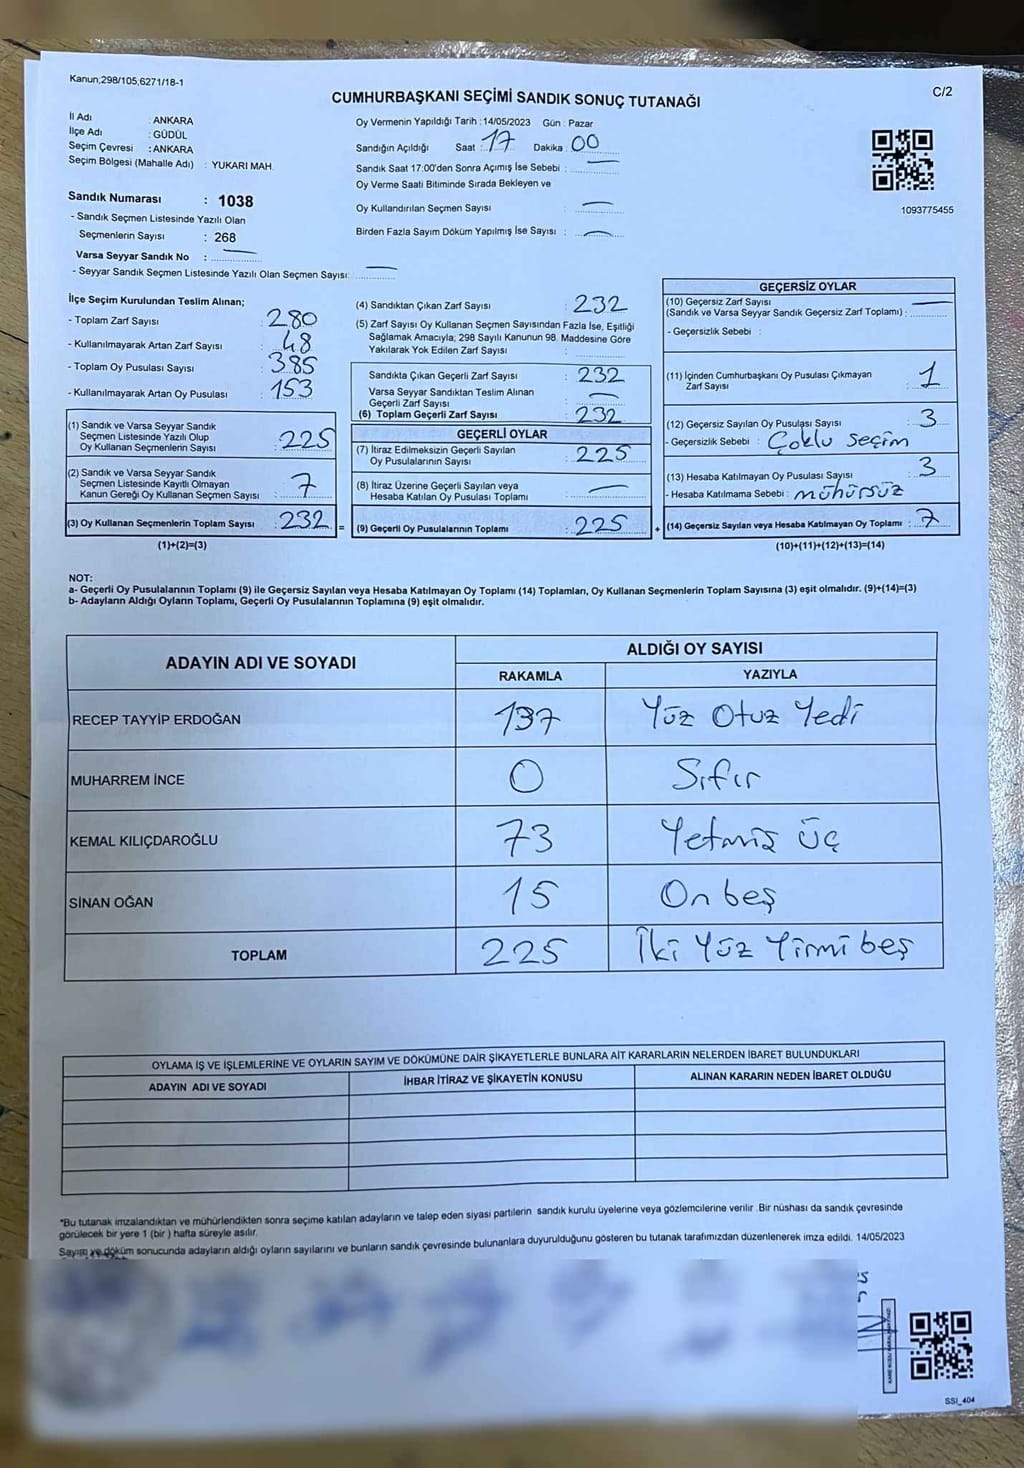 Kanun,298/105,6271/18-1
C/2
CUMHURBAŞKANI SEÇİMİ SANDIK SONUÇ TUTANAĞI
İl Adı : ANKARA
İlçe Adı : GÜDÜL
Seçim Çevresi : ANKARA
Seçim Bölgesi (Mahalle Adı) : YUKARI MAH.
Sandık Numarası : 1038
- Sandık Seçmen Listesinde Yazılı Olan
Seçmenlerin Sayısı : 268
Varsa Seyyar Sandık No :
- Seyyar Sandık Seçmen Listesinde Yazılı Olan Seçmen Sayısı:
Oy Vermenin Yapıldığı Tarih : 14/05/2023 Gün : Pazar
Sandığın Açıldığı Saat : 17 Dakika : 00
Sandık Saat 17:00'den Sonra Açımış İse Sebebi :
Oy Verme Saati Bitiminde Sırada Bekleyen ve
Oy Kullandırılan Seçmen Sayısı :
Birden Fazla Sayım Döküm Yapılmış İse Sayısı :
1093775455
İlçe Seçim Kurulundan Teslim Alınan;
- Toplam Zarf Sayısı : 280
- Kullanılmayarak Artan Zarf Sayısı : 48
- Toplam Oy Pusulası Sayısı : 385
- Kullanılmayarak Artan Oy Pusulası : 153
(1) Sandık ve Varsa Seyyar Sandık
Seçmen Listesinde Yazılı Olup
Oy Kullanan Seçmenlerin Sayısı : 225
(2) Sandık ve Varsa Seyyar Sandık
Seçmen Listesinde Kayıtlı Olmayan
Kanun Gereği Oy Kullanan Seçmen Sayısı : 7
(3) Oy Kullanan Seçmenlerin Toplam Sayısı : 232 =
(1)+(2)=(3)
(4) Sandıktan Çıkan Zarf Sayısı : 232
(5) Zarf Sayısı Oy Kullanan Seçmen Sayısından Fazla İse, Eşitliği
Sağlamak Amacıyla; 298 Sayılı Kanunun 98. Maddesine Göre
Yakılarak Yok Edilen Zarf Sayısı :
Sandıkta Çıkan Geçerli Zarf Sayısı : 232
Varsa Seyyar Sandıktan Teslim Alınan
Geçerli Zarf Sayısı :
(6) Toplam Geçerli Zarf Sayısı : 232
GEÇERLİ OYLAR
(7) İtiraz Edilmeksizin Geçerli Sayılan
Oy Pusulalarının Sayısı : 225
(8) İtiraz Üzerine Geçerli Sayılan veya
Hesaba Katılan Oy Pusulaları Toplamı :
(9) Geçerli Oy Pusulalarının Toplamı : 225 +
GEÇERSİZ OYLAR
(10) Geçersiz Zarf Sayısı
(Sandık ve Varsa Seyyar Sandık Geçersiz Zarf Toplamı) :
- Geçersizlik Sebebi :
(11) İçinden Cumhurbaşkanı Oy Pusulası Çıkmayan
Zarf Sayısı : 1
(12) Geçersiz Sayılan Oy Pusulası Sayısı : 3
- Geçersizlik Sebebi : Çoklu seçim
(13) Hesaba Katılmayan Oy Pusulası Sayısı : 3
- Hesaba Katılmama Sebebi : mühürsüz
(14) Geçersiz Sayılan veya Hesaba Katılmayan Oy Toplamı : 7
(10)+(11)+(12)+(13)=(14)
NOT:
a- Geçerli Oy Pusulalarının Toplamı (9) ile Geçersiz Sayılan veya Hesaba Katılmayan Oy Toplamı (14) Toplamları, Oy Kullanan Seçmenlerin Toplam Sayısına (3) eşit olmalıdır. (9)+(14)=(3)
b- Adayların Aldığı Oyların Toplamı, Geçerli Oy Pusulalarının Toplamına (9) eşit olmalıdır.
ADAYIN ADI VE SOYADI
ALDIĞI OY SAYISI
RAKAMLA YAZIYLA
RECEP TAYYİP ERDOĞAN 137 Yüz Otuz Yedi
MUHARREM İNCE 0 Sıfır
KEMAL KILIÇDAROĞLU 73 Yetmiş üç
SİNAN OĞAN 15 On beş
TOPLAM 225 İki Yüz Yirmi beş
OYLAMA İŞ VE İŞLEMLERİNE VE OYLARIN SAYIM VE DÖKÜMÜNE DAİR ŞİKAYETLERLE BUNLARA AİT KARARLARIN NELERDEN İBARET BULUNDUKLARI
ADAYIN ADI VE SOYADI İHBAR İTİRAZ VE ŞİKAYETİN KONUSU ALINAN KARARIN NEDEN İBARET OLDUĞU
*Bu tutanak imzalandıktan ve mühürlendikten sonra seçime katılan adayların ve talep eden siyasi partilerin sandık kurulu üyelerine veya gözlemcilerine verilir .Bir nüshası da sandık çevresinde
görülecek bir yere 1 (bir ) hafta süreyle asılır.
Sayım ve döküm sonucunda adayların aldığı oyların sayılarını ve bunların sandık çevresinde bulunanlara duyurulduğunu gösteren bu tutanak tarafımızdan düzenlenerek imza edildi. 14/05/2023
SSI_404